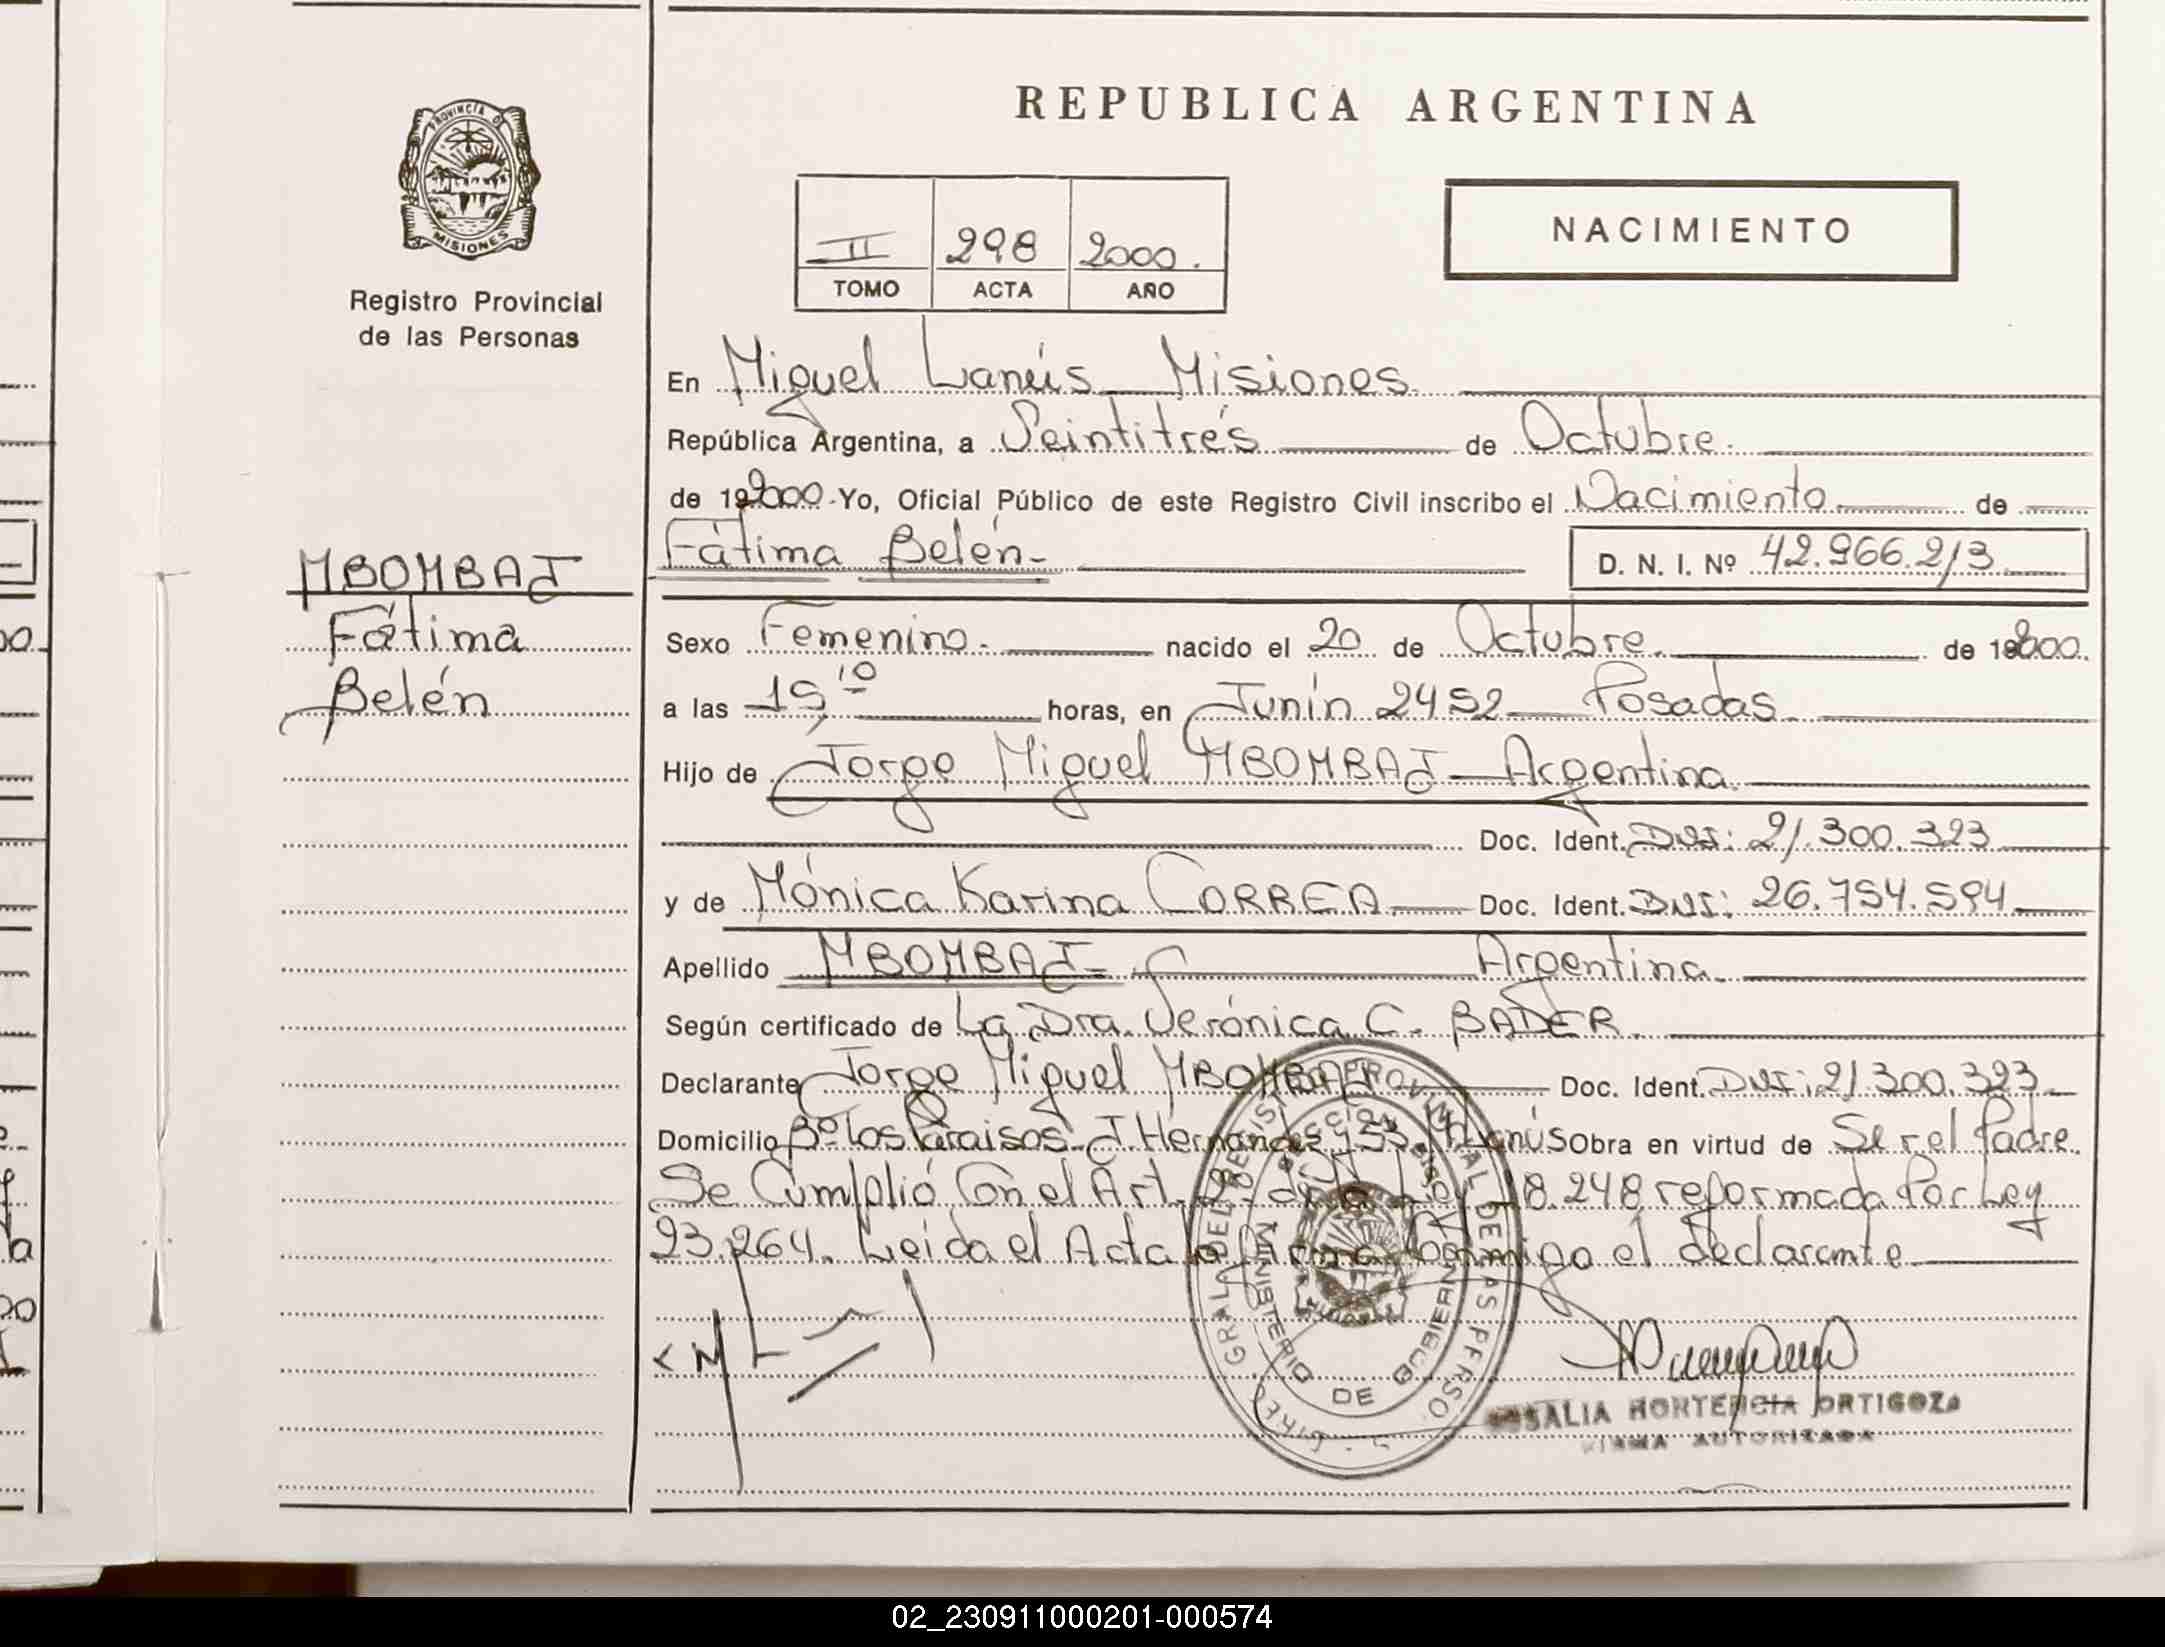 REPUBLICA ARGENTINA
PROVINCIA DE MISIONES
Registro Provincial
de las Personas
II 298 2000.
TOMO ACTA AÑO
NACIMIENTO
En Miguel Lanús Misiones.
República Argentina, a Veintitrés de Octubre.
de 192000. Yo, Oficial Público de este Registro Civil inscribo el Nacimiento de
Fátima Belén- D. N. I. Nº 42.966.213
MBOMBAJ
Fátima
Belén
Sexo Femenino. nacido el 20 de Octubre. de 192000.
a las 15,10 horas, en Junín 2452 Posadas.
Hijo de Jorge Miguel MBOMBAJ Argentina.
Doc. Ident. DNI: 21.300.323
y de Mónica Karina CORREA Doc. Ident. DNI: 26.754.594
Apellido MBOMBAJ Argentina.
Según certificado de La Dra. Verónica C. BADER.
Declarante Jorge Miguel MBOMBAJ Doc. Ident. DNI: 21.300.323
Domicilio Bº Los Paraisos- J. Hernández M. Lanús Obra en virtud de Ser el Padre.
Se Cumplió Con el Art. de la Ley 18.248 reformada Por Ley
23.264. Leída el Acta la firma Conmigo el declarante
DEL REGISTRO PROVINCIAL DE LAS PERSO
MINISTERIO DE GOBIERNO
ROSALIA HORTENCIA ORTIGOZA
FIRMA AUTORIZADA
02_230911000201-000574